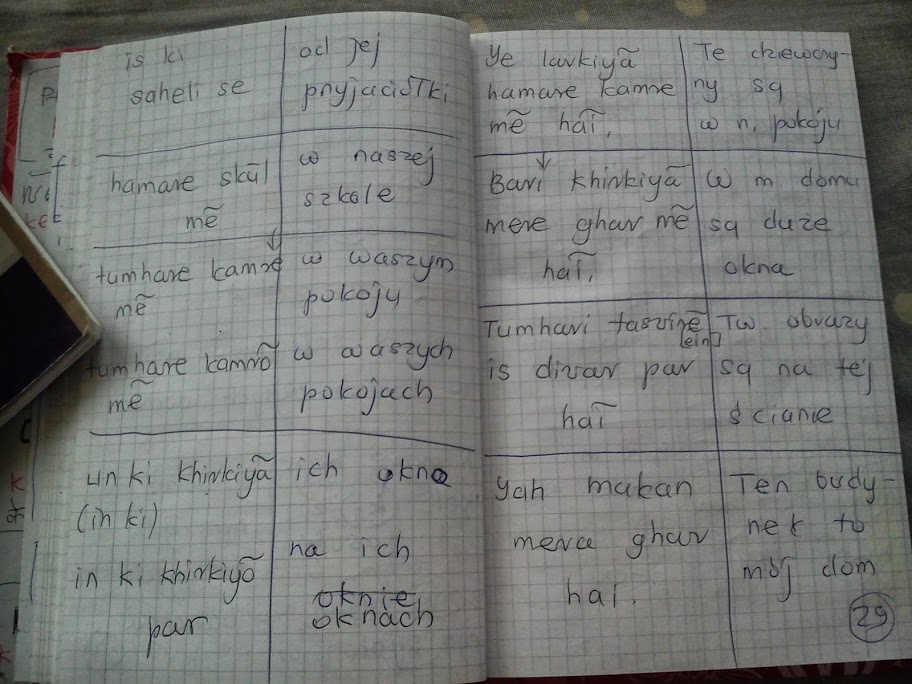 is ki
saheli se
od jej
przyjaciółki
hamare skūl
mẽ
w naszej
szkole
tumhare kamre
mẽ
w waszym
pokoju
tumhare kamrõ
mẽ
w waszych
pokojach
un ki khirkiyã
(in ki)
ich okna
in ki khirkiyõ
par
na ich
oknie
oknach
Ye larkiyã
hamare kamre
mẽ haĩ.
Te dziewczy-
ny są
w n. pokoju
Bari khirkiyã
mere ghar mẽ
haĩ.
W m. domu
są duże
okna
Tumhari tasvirẽ
[ein]
is divar par
haĩ
Tw. obrazy
są na tej
ścianie
Yah makan
mera ghar
hai.
Ten budy-
nek to
mój dom
29